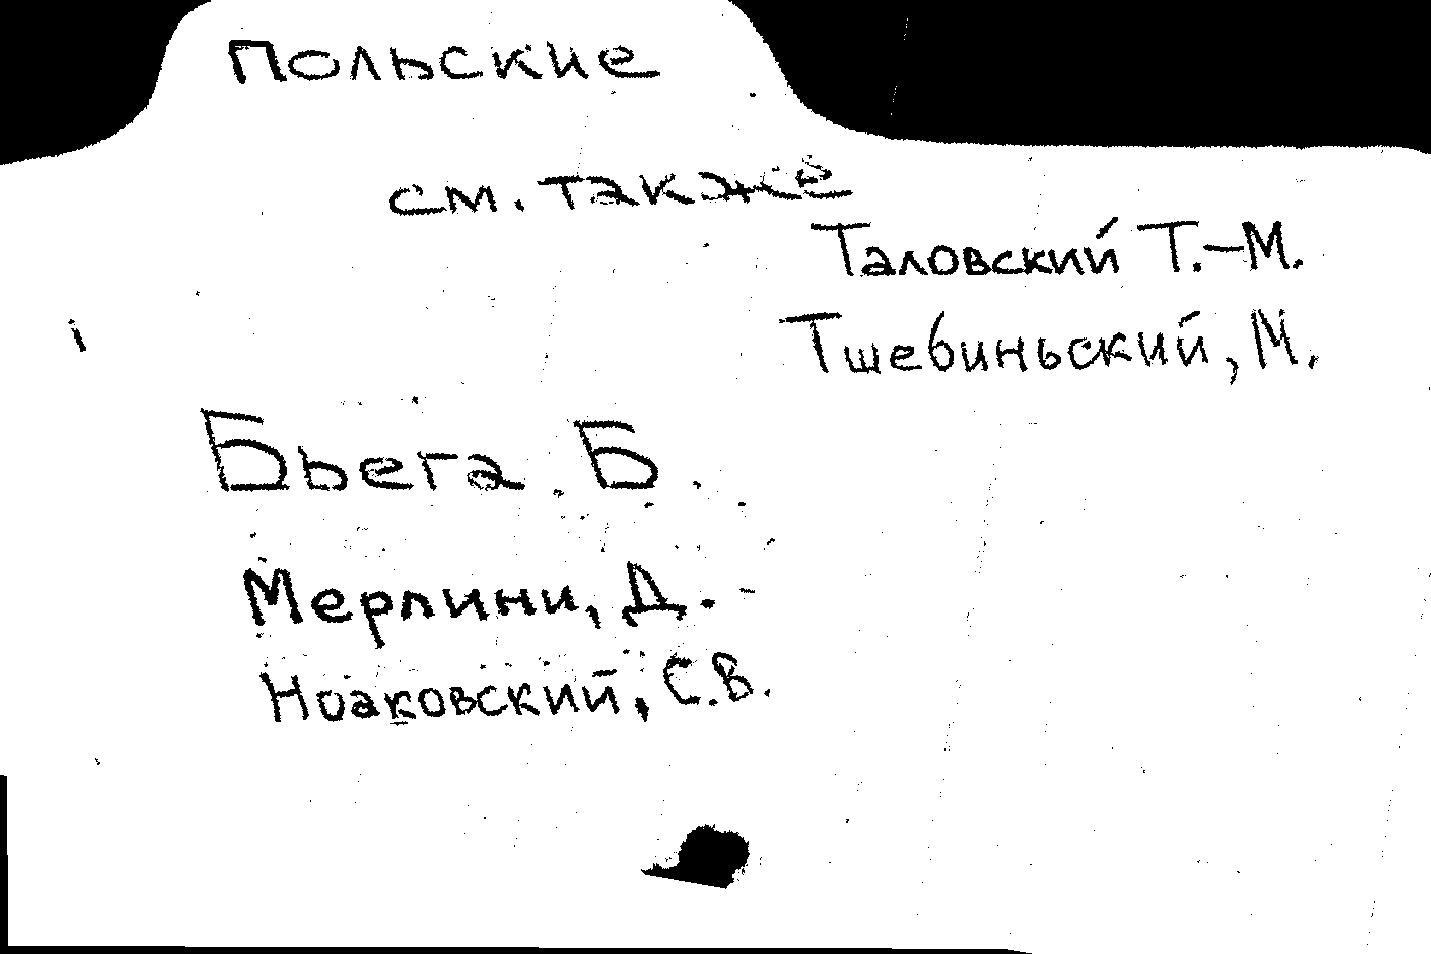 Польские
см. также
Таловский Т.-М.
Тшебиньский, М.
Бьега Б.
Мерлини, Д.
Ноаковский, С.В.